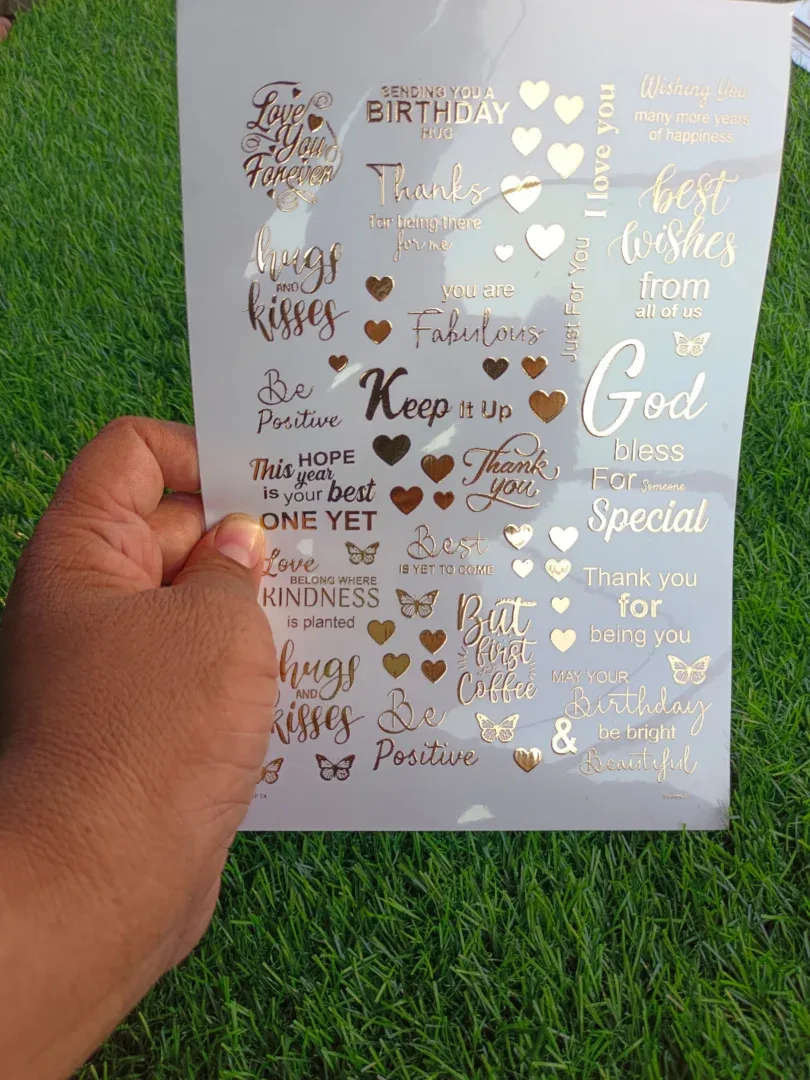 Love
You
Forever
SENDING YOU A
BIRTHDAY
HUG
I love you
Wishing You
many more years
of happiness
Thanks
for being there
for me
best
wishes
from
all of us
hugs
AND
kisses
you are
Fabulous
Just For You
Be
Positive
Keep It Up
God
bless
For Someone
Special
This HOPE
year
is your best
ONE YET
Thank
you
Best
IS YET TO COME
Love
BELONG WHERE
KINDNESS
is planted
But
first
Coffee
Thank you
for
being you
hugs
AND
kisses
Be
Positive
MAY YOUR
Birthday
& be bright
Beautiful